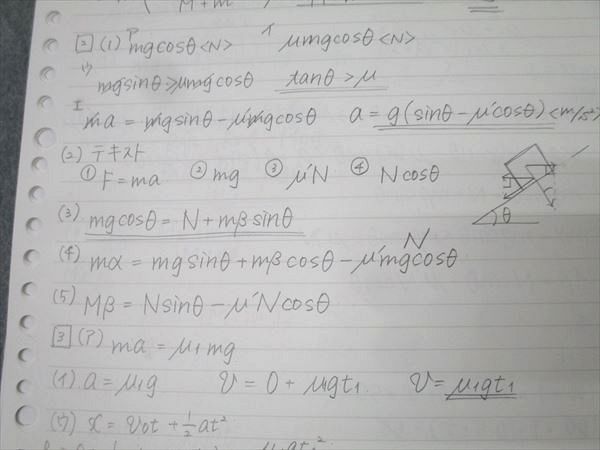 M+m
2 (1) ア mgcosθ<N> イ μmgcosθ<N>
ウ mgsinθ>μmgcosθ tanθ>μ
エ ma = mgsinθ-μ'mgcosθ a = g(sinθ-μ'cosθ)<m/s²>
(2) テキスト
① F=ma ② mg ③ μ'N ④ Ncosθ
θ
(3) mgcosθ = N+mβsinθ
N
(4) mα = mgsinθ+mβcosθ-μ'mgcosθ
(5) Mβ = Nsinθ-μ'Ncosθ
3 (ア) ma = μ₁mg
(イ) a = μ₁g v = 0+μ₁gt₁ v = μ₁gt₁
(ウ) x = v₀t+½at²